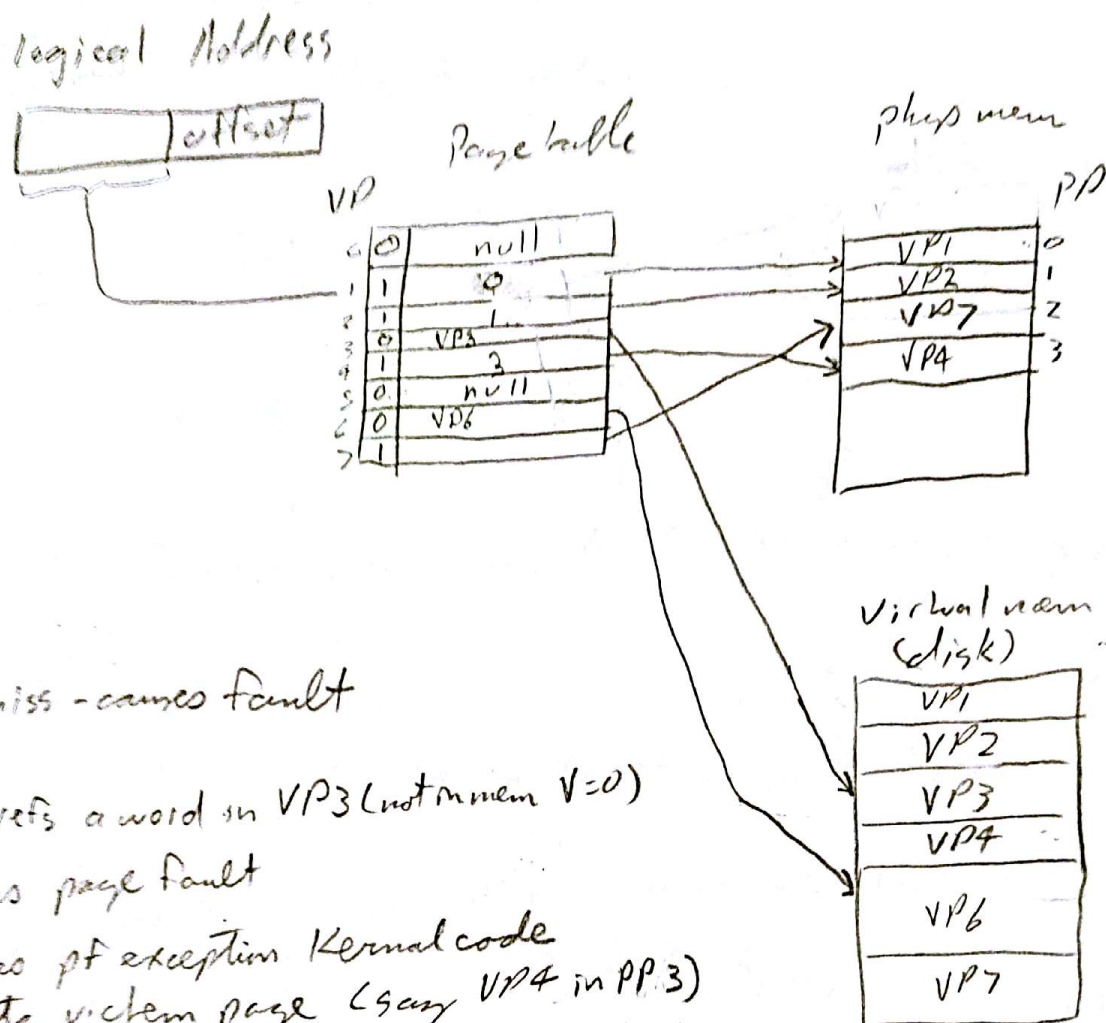 logical Address
offset
Page table
phys mem
VP
PP
0 0 null
1 1 0
2 1 1
3 0 VP3
4 1 3
5 0 null
6 0 VP6
7 1
VP1 0
VP2 1
VP7 2
VP4 3
Virtual mem
(disk)
VP1
VP2
VP3
VP4
VP6
VP7
miss - causes fault
refs a word in VP3 (not in mem V=0)
page fault
pf exception Kernal code
victem page (say VP4 in PP3)